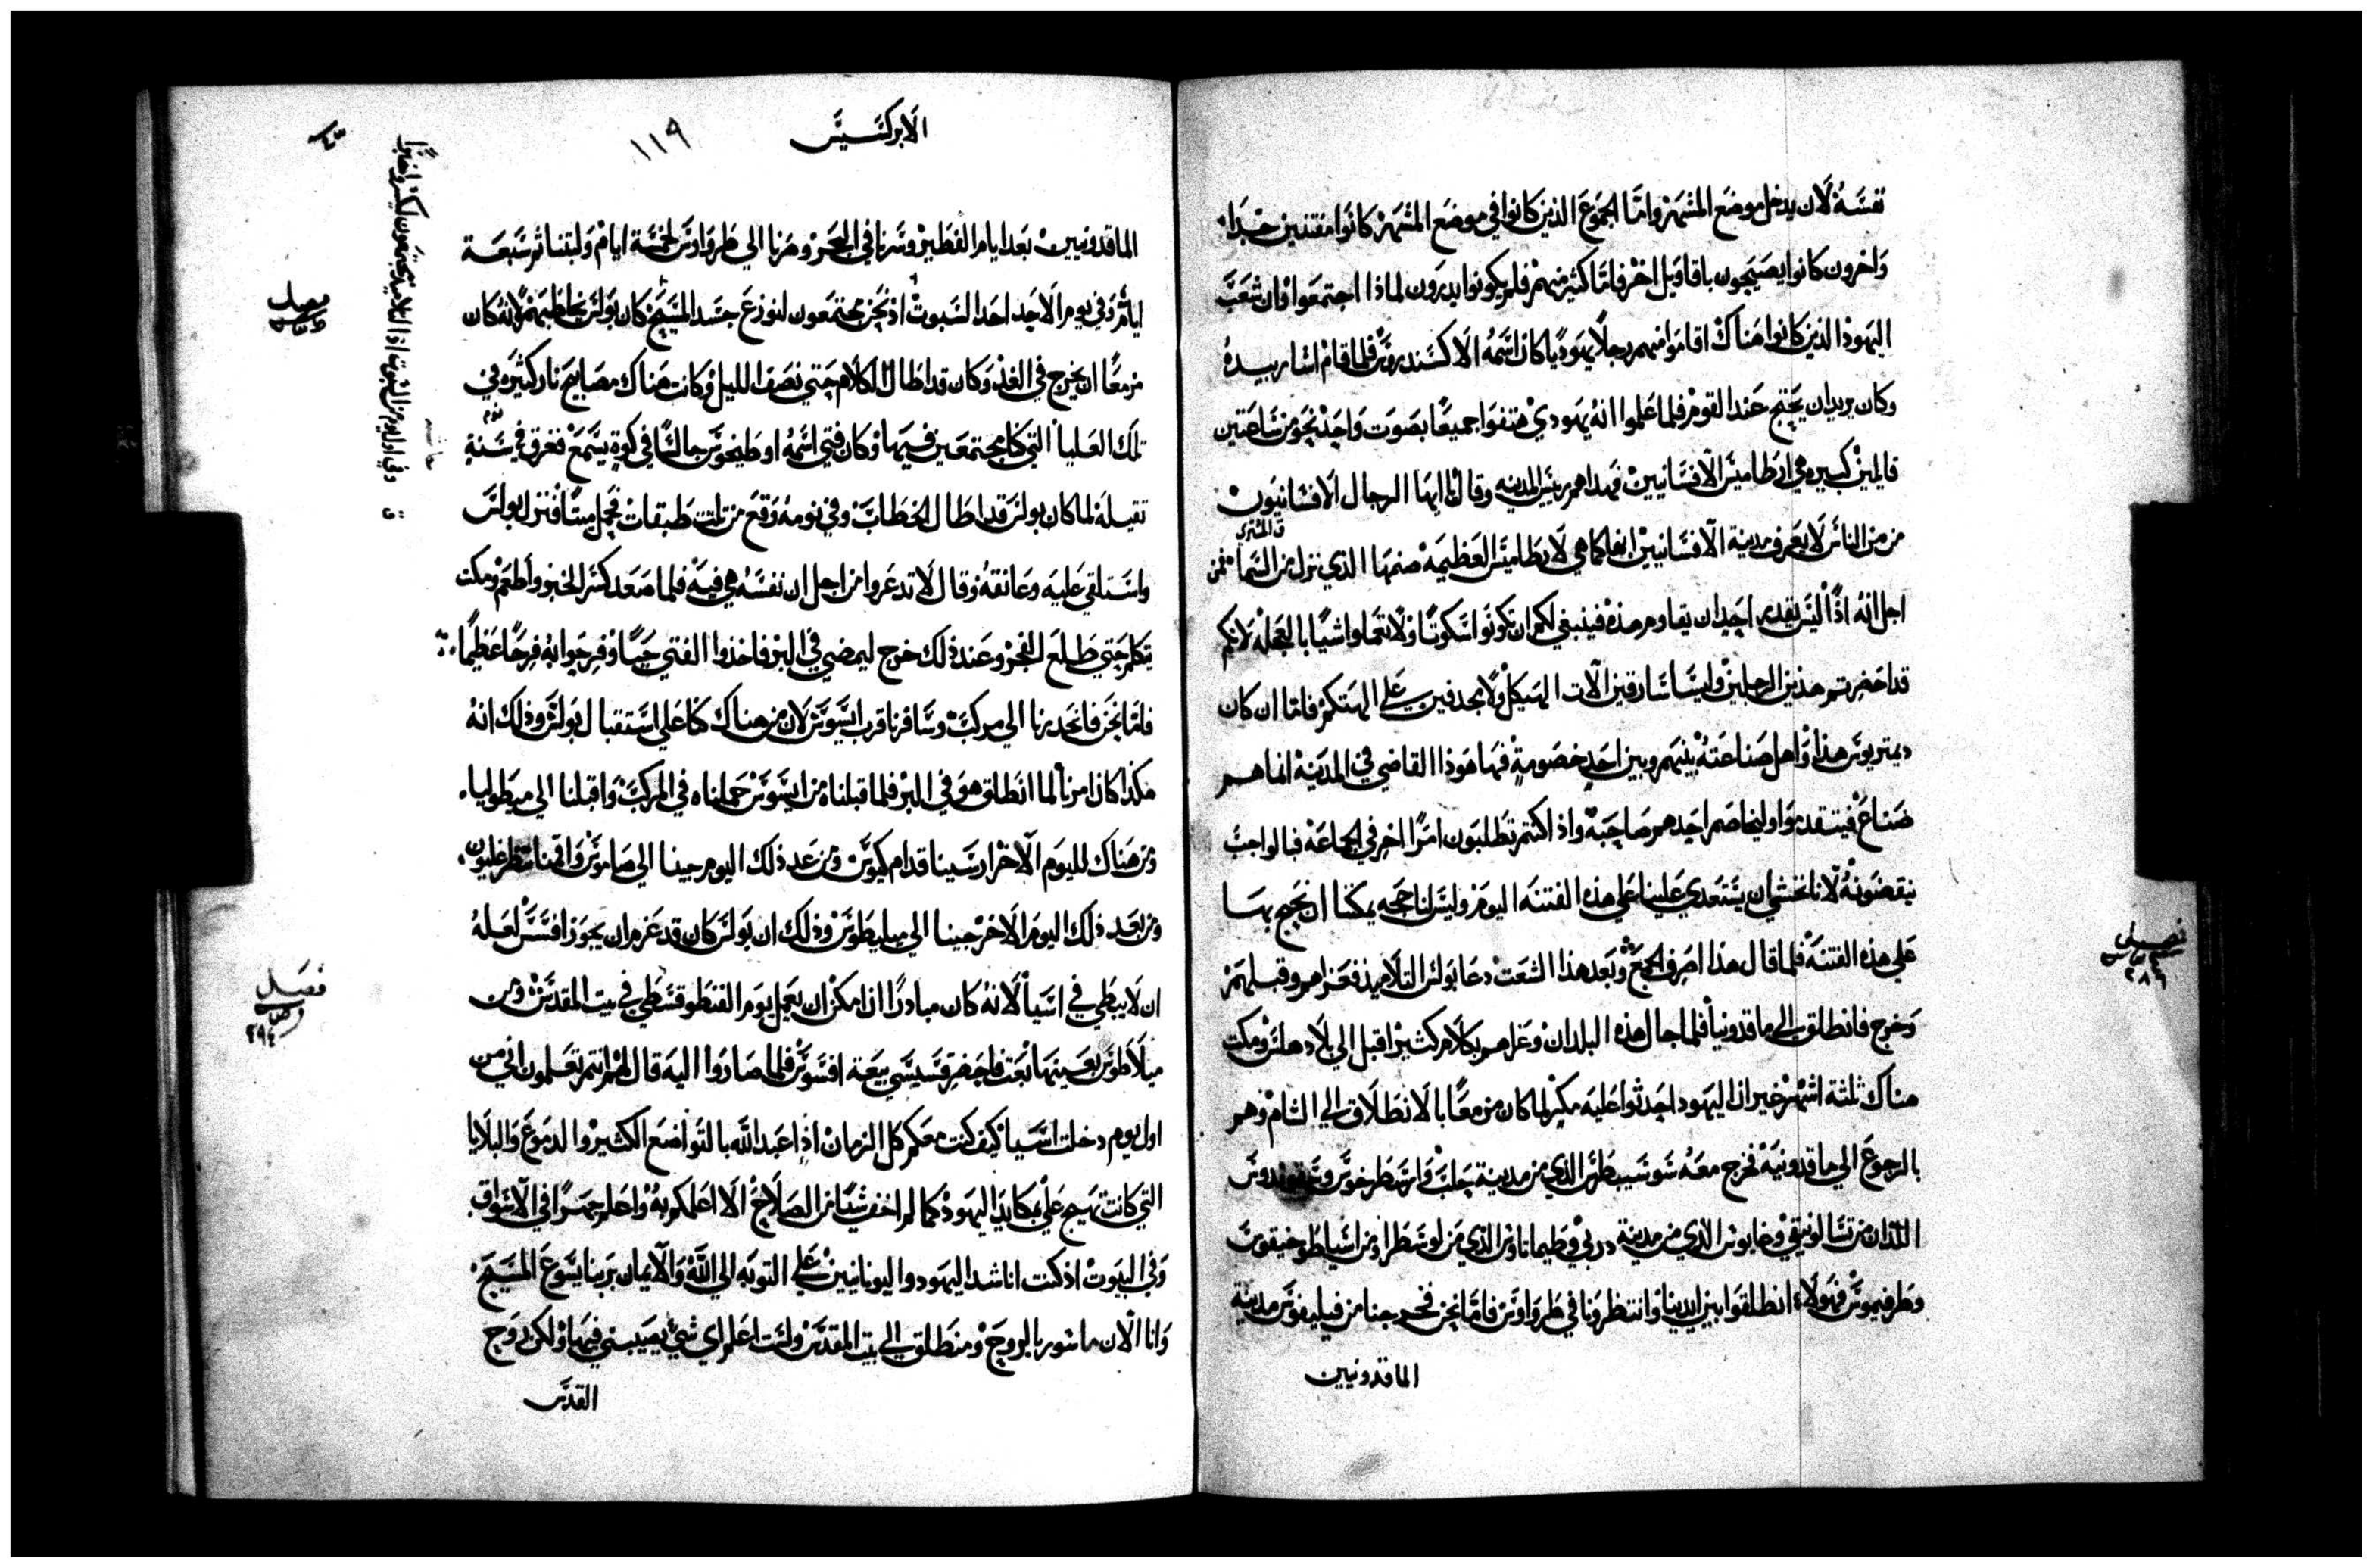 نفسه لان يدخل موضع المشهر واما الجموع الذين كانوا في موضع المشهر كانوا مفتنين جدا
واخرون كانوا يصيحون باقاويل اخر فاما كثير منهم فلم يكونوا يدرون لماذا اجتمعوا فان شعب
اليهود الذين كانوا هناك اقاموا منهم رجلا يهوديا كان اسمه الاكسندروس فلما قام اشار بيده
وكان يريد ان يحتج عند القوم فلما علموا انه يهودي هتفوا جميعا بصوت واحد نحو من ساعتين
قايلين كبيره هي ارطاميس الافسانيين فهداهم ريس المدينه وقال يا ايها الرجال الافسانيون
من من الناس لا يعرف مدينة الافسانيين انها كما هي لارطاميس العظيمه صنمها الذي نزل من السما فمن
ق المشتري
اجل انه اذا ليس يقدر احد ان يقاوم هذه فينبغي لكم ان تكونوا سكوتا ولا تعملوا شيا بالعجله لانكم
قد احضرتم هذين الرجلين وليسا سارقين الات الهيكل ولا مجدفين على الهتكم فاما ان كان
ديمتريوس هذا واهل صناعته بينهم وبين احد خصومة فها هوذا القاضي في المدينه انما هم
صناع فيتقدموا وليخاصم احدهم صاحبه واذ اكنتم تطلبون امرا اخر في الجماعه فبالواجب
يقضونه لانا نخشي ان يستعدي علينا على هذه الفتنه اليوم وليس لنا حجه يمكننا ان نحتج بها
على هذه الفتنه فلما قال هذا اصرف الجمع وبعد هذا الشعث دعا بولس التلاميذ فعزاهم وقبلهم
وخرج فانطلق الي ماقدونيا فلما جال هذه البلدان وعزاهم بكلام كثير اقبل الي بلاد هلس ومكث
هناك ثلثة اشهر غير ان اليهود احدثوا عليه مكرا لما كان مزمعا بالانطلاق الي الشام وهم
بالرجوع الي ماقدونيه فخرج معه سوسيبطرس الذي من مدينة حلب وارسطرخوس
اللذان من تسالونيقي وغايوس الذي من مدينة دربي وطيماتاوس الذي من لوسطرا ومن اسيا طوخيقوس
وطرفيموس فهولاء انطلقوا بين ايدينا وانتظرونا في طرواوس فاما نحن فخرجنا من فيليفوس مدينة
الماقدونيين
فصل
٢٨٦
الابركسيس
١١٩
الماقدونيين بعد ايام الفطير وسرنا في البحر وصرنا الي طرواوس لخمسة ايام ولبثنا ثم سبعة
ايام وفي يوم الاحد احد السبوت اذ نحن مجتمعون لنوزع جسد المسيح كان بولس يخاطبهم لانه كان
مزمعا ان يخرج في الغد وكان قد اطال الكلام حتي نصف الليل وكانت هناك مصابيح نار كثيره في
تلك العليا التي كنا مجتمعين فيها وكان فتي اسمه اوطيخوس جالسا في كوة يسمع فغرق في سنة
نوم
ثقيله لما كان بولس قد اطال الخطاب وفي نومه وقع من ثلث طبقات فحمل ميتا فنزل بولس
واستلقي عليه وعانقه وقال لا تدعروا من اجل ان نفسه هي فيه فلما صعد كسر الخبز واطعم ومكث
يتكلم حتي طلع الفجر وعند ذلك خرج ليمضي في البر فاخذوا الفتي حيا وفرحوا به فرحا عظيما
فاما نحن فانحدرنا الي مركب وسافرنا قرب ايسوس لان من هناك كنا على استقبال بولس وذلك انه
هكذا كان امرنا لما انطلق هو في البر فلما قبلناه من ايسوس حملناه في المركب واقبلنا الي ميطوليا
ومن هناك لليوم الاخر ارسينا قدام كيوس ومن عد ذلك اليوم جينا الي ساموس واقمنا
ومن بعد ذلك اليوم الاخر جينا الي ميليطوس وذلك ان بولس كان قد عزم ان يجوز افسس لعله
ان لا يبطي في اسيا لانه كان مبادرا ان امكن ان يعمل يوم الفنطوقسطي في بيت المقدس ومن
ميلاطوس بعينها بعث فاحضر قسيسي بيعة افسوس فلما صاروا اليه قال لهم انتم تعلمون اني من
اول يوم دخلت اسيا كيف كنت معكم كل الزمان اذا عبد الله بالتواضع الكثير والدموع والبلايا
التي كانت تهيج علي بمكايد اليهود كما لم اخف شيا من الصلاح الا اعلمكم به واعلم جهرا في الاسواق
وفي البيوت اذ كنت اناشد اليهود واليونانيين على التوبه الي الله والايمان بربنا يسوع المسيح
وانا الان ماسور بالروح ومنطلق الي بيت المقدس ولست اعلم اي شي يصيبني فيها ولكن روح
القدس
فصل
فصل
٢٩٤
وفي اول يوم من السبوت اذا التلاميذ مجتمعون ليكسروا خبزا